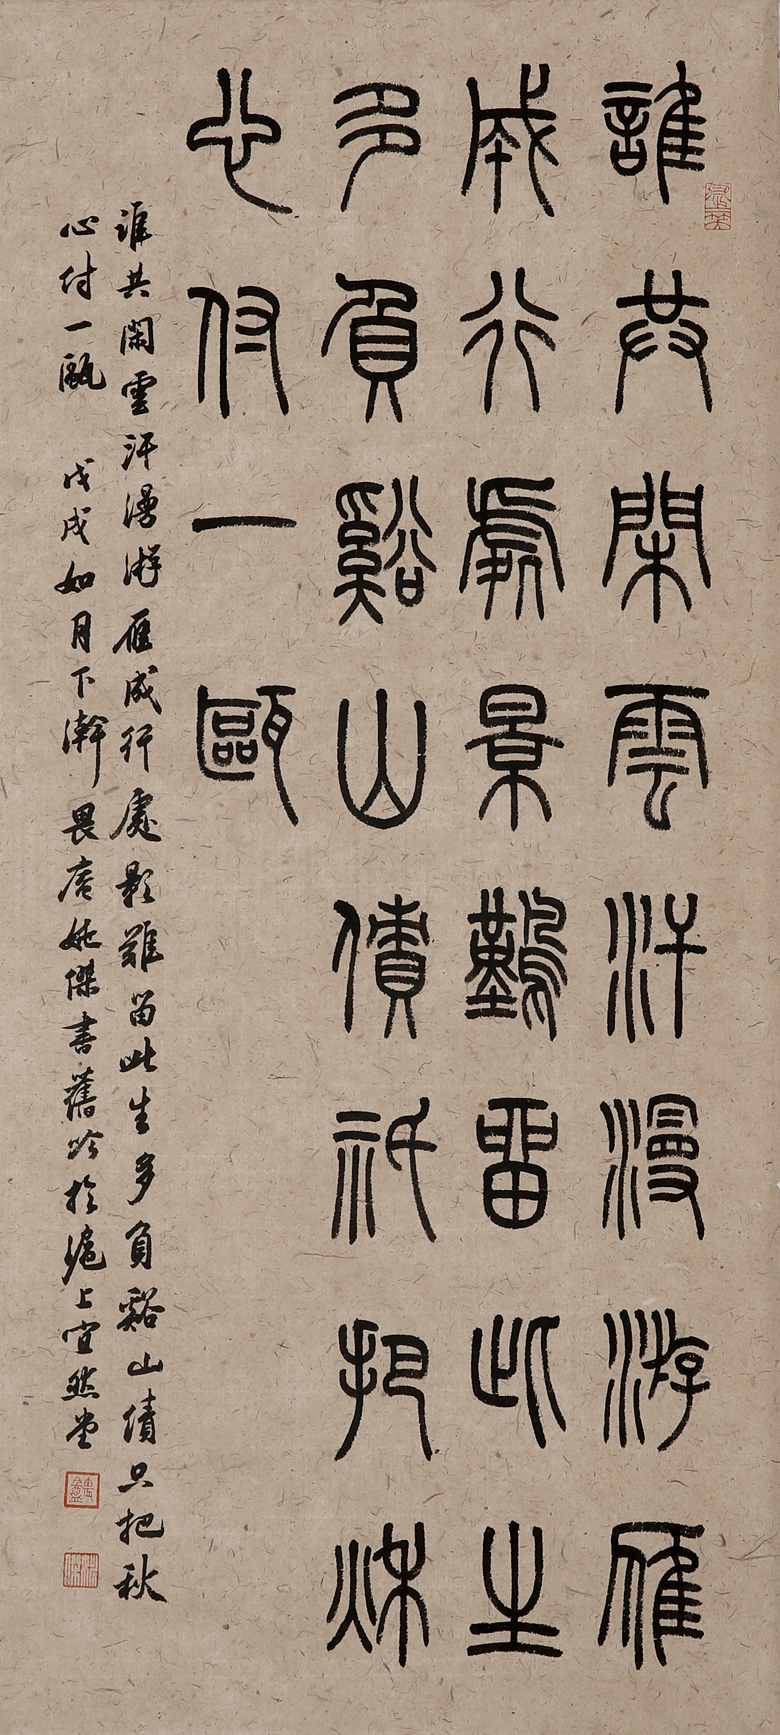 誰共閑雲汗漫游雁
成行處景難留此生
多負谿山債祇把秋
心付一甌
誰共閑雲汗漫游雁成行處影難留此生多負谿山債只把秋
心付一甌 戊戌如月下澣畏庵姚傑書舊吟於滬上宜然堂